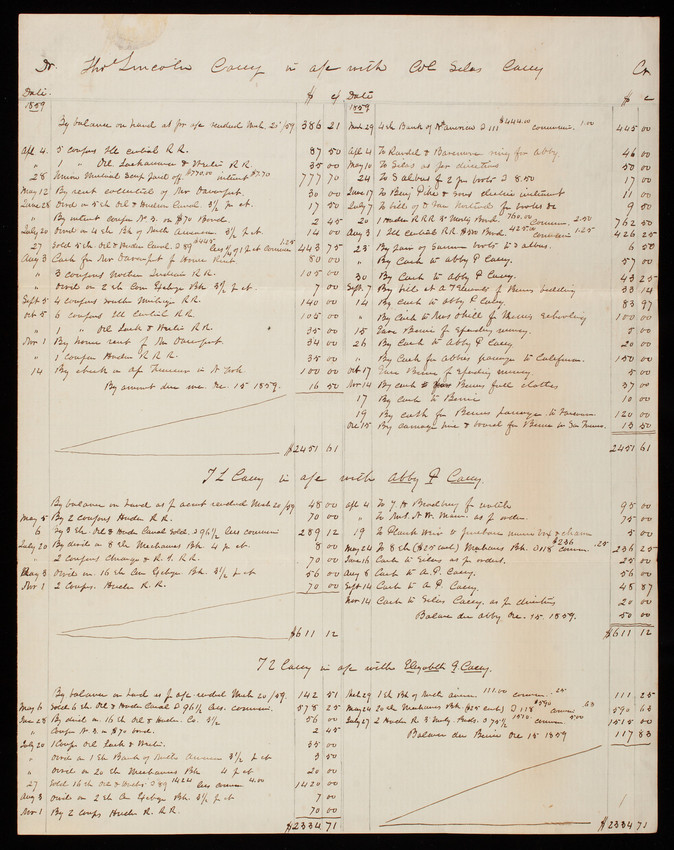 Dr. Thos Lincoln Casey in a/c with Col Silas Casey Cr
Date. $ cts Date $ c
1859 1859
By balance on hand as pr a/c rendered Mch. 20/59 386 21
Mch 29 4 sh Bank of N America @ 111 $444.00 commiss. 1.00 445 00
Apl 4. 5 coupons Ill central R.R. 87 50
" 1 " Del Lackawanna & Western R R. 35 00
28 Union Mutual Scrip part off $770.00 interest $7.70 777 70
May 12 By rent collected of Mr Davenport. 30 00
June 28 Divd on 5 sh Del & Hudson Canal. 3½ pr ct. 17 50
" By interest coupn No 3. on $70 Bond. 2 45
July 20 Divd on 4 sh Bk of North American 3½ pr ct. 14 00
27 Sold 5 sh Del & Hudn Canal @ 89 $445 less ¼ of 1 pr ct commissn 1.25 443 75
Aug 3 Cash for Mr Davenport pr House Rent 80 00
" 3 coupons Northern Indiana R R. 105 00
" Divd on 2 sh Corn Exchge Bk 3½ pr ct. 7 00
Sept 5 4 coupons South Michign R R. 140 00
Oct 5 6 coupons Ill central R R. 105 00
" 1 " Del Lack & Westn R R. " 35 00
Nov 1 By house rent of Mr Davenport. 34 00
" 1 coupon Hudson R R R. 35 00
14 By check on Asst Treasurer in N York 100 00
By amount due me Dec 15 1859. 16 50
$2451 61
Apl 4 To Randel & Baremore ring for Abby. 46 00
May 10 To Silas as pr directions 50 00
24 To 3 albus pr 2 pr boots @ 8.50 17 00
June 17 To Benj Pike & sons electric instrument 11 00
July 7 To bill of D Van Nostrand for books &c 9 50
20 1 Hudn R R R 3d Mortg Bond 760.00 Commiss. 2.50 762 50
Aug 3 1 Ill central RR. $500 Bond 425.00 commissn 1.25 426 25
23 By pair of Cavalry boots to albus. 6 50
" By Cash to Abby P Casey. 57 00
30 By Cash to Abby P Casey 43 25
Sept. 7 By bill at for Bernes bedding 33 14
14 By cash to Abby P Casey. 83 97
" By Cash to Mrs Hill pr Bernes schooling 100 00
15 Gave Bernie pr spending money. 5 00
26 By Cash to Abby P Casey 20 00
" By Cash for Abbies passage to California. 150 00
Oct 17 Gave Bernie pr spending money 5 00
Nov 14 By cash pr Bernes fall clothes 37 00
17 By cash to Bernie 10 00
19 By cash for Bernes passage to Panama. 120 00
Dec 15 By carriage hire & board for Berne in San Franco. 13 50
2451 61
T L Casey in a/c with Abby P Casey.
By balance on hand as pr acent rendered Mch 20/59 48 00
May 5 By 2 coupons Hudsn R R. 70 00
6 By 3 sh. Del & Hudn Canal Sold. @ 96½ less commissn 289 12
July 20 By divd on 8 sh Mechanics Bk 4 pr ct. 8 00
" 2 coupons Chicago & R. I. RR. 70 00
Aug 3 Divd on 16 sh Corn Exchge Bk. 3½ pr ct 56 00
Nov 1 2 Coups. Hudsn R. R. 70 00
$611 12
Apl 4 To J. H Bradbury pr 95 00
" To Mrs. as pr order. 75 00
19 To Frank Weir to purchase & charm 5 00
May 24 To 8 sh ($25 each) Mechanics Bk. @ 118 $236 commn. .25 236 25
June 16 Cash to Silas as pr order. 25 00
Aug 8 Cash to A. P. Casey. 56 00
Sept 14 Cash to A. P. Casey. 48 87
Nov 14 Cash to Silas Casey. as pr directions 20 00
Balance due Abby Dec. 15. 1859. 50 00
$611 12
T L Casey in a/c with Elizabeth P Casey.
By balance on hand as pr a/c rendered Mch 20/59. 142 51
May 6 Sold 6 sh. Del & Hudsn Canal @ 96½ less. commissn. 578 25
June 28 By divd on 16 sh Del & Hudsn. Co. 3½ 56 00
" Coupn No 3. on $70 bond. 2 45
July 20 1 Coup. Del Lack & Westn. 35 00
" Divd on 1 sh Bank of North American 3½ pr ct 3 50
" Divd on 20 sh Mechanics Bk 4 pr ct. 20 00
27 Sold 16 sh Del & Hudsn @ 89 1424 less commn 4.00 1420 00
Aug 3 Divd on 2 sh Cn Exchge Bk. 3½ pr ct. 7 00
Nov 1 By 2 Coups Hudsn R. R. R. 70 00
$2334 71
Mch 29 1 sh Bk of North Americn. 111.00 commn. .25 111 25
May 24 20 sh Mechanics Bk ($25 each) @ 118 $590 commn .63 590 63
July 27 2 Hudn R R 3 Mortg Bonds. @ 75½ 1510. commn 5.00 1515 00
Balance due Bernie Dec 15 1859 117 83
$2334 71